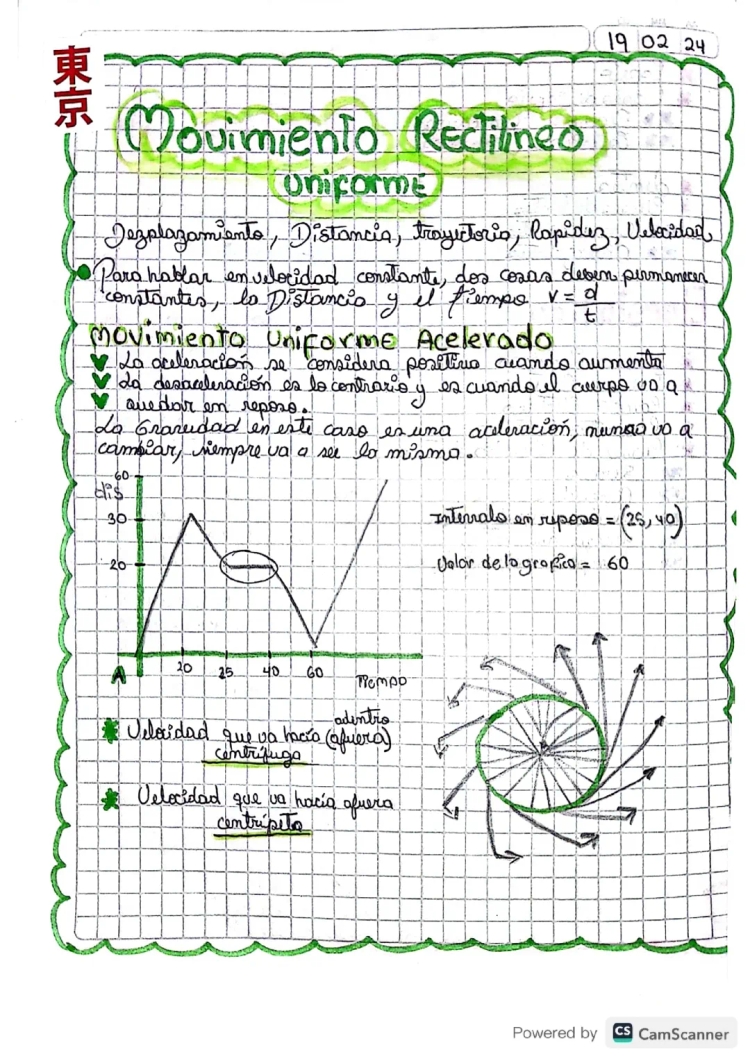 19 02 24
東京
Movimiento Rectilineo
uniforme
Dezplazamiento, Distancia, trayectoria, Rapidez, Velocidad
Para hablar en velocidad constante, dos cosas deben permanecer
constantes, la Distancia y el tiempo v = d
t
Movimiento Uniforme Acelerado
La aceleración se considera positiva cuando aumenta
La desaceleración es lo contrario y es cuando el cuerpo va a
quedar en reposo.
La Gravedad en este caso es una aceleración, nunca va a
cambiar, siempre va a ser la misma.
60
dis
30
20
Intervalo en reposo = (25, 40)
Valor de la grafica = 60
A
20 25 40 60
Tiempo
adentro
Velocidad que va hacía (afuera)
centrífuga
Velocidad que va hacía afuera
centrípeta
Powered by CS CamScanner